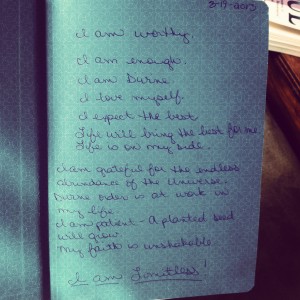 3-19-2013
I am worthy.
I am enough.
I am Divine.
I love myself.
I expect the best.
Life will bring the best for me.
Life is on my side.
I am grateful for the endless
abundance of the Universe.
Divine order is at work in
my life.
I am patient - A planted seed
will grow.
My faith is unshakable.
I am Limitless!